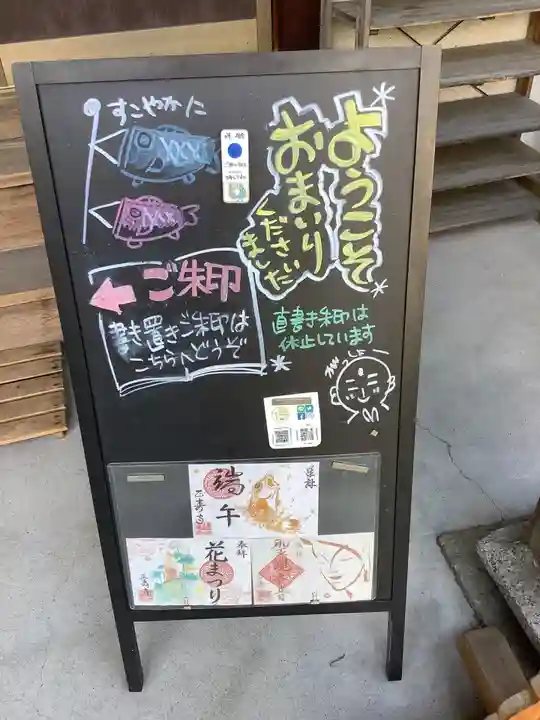 すこやかに
ようこそ
おまいり
ください
ました
ご朱印
書き置きご朱印は
こちらへどうぞ
直書き朱印は
休止しています
端午
奉拝
花まつり